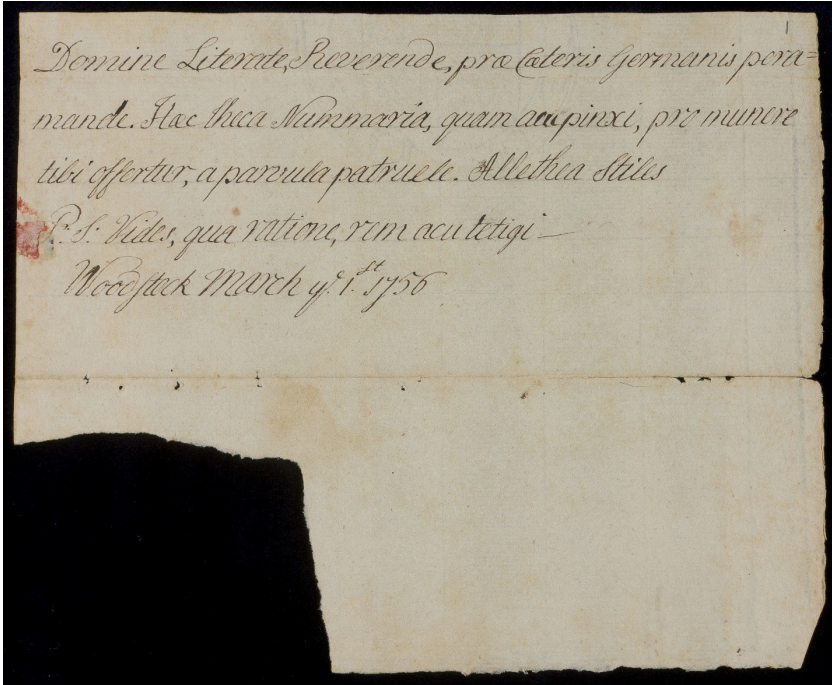 1
Domine Literate, Reverende, præ Cæteris Germanis pera=
mande. Hæc theca Nummaria, quam acu pinxi, pro munere
tibi offertur, a parvula patruele. Allethea Stiles
P: S: Vides, qua ratione, rem acu tetigi —
Woodstock March ye. 1.st 1756